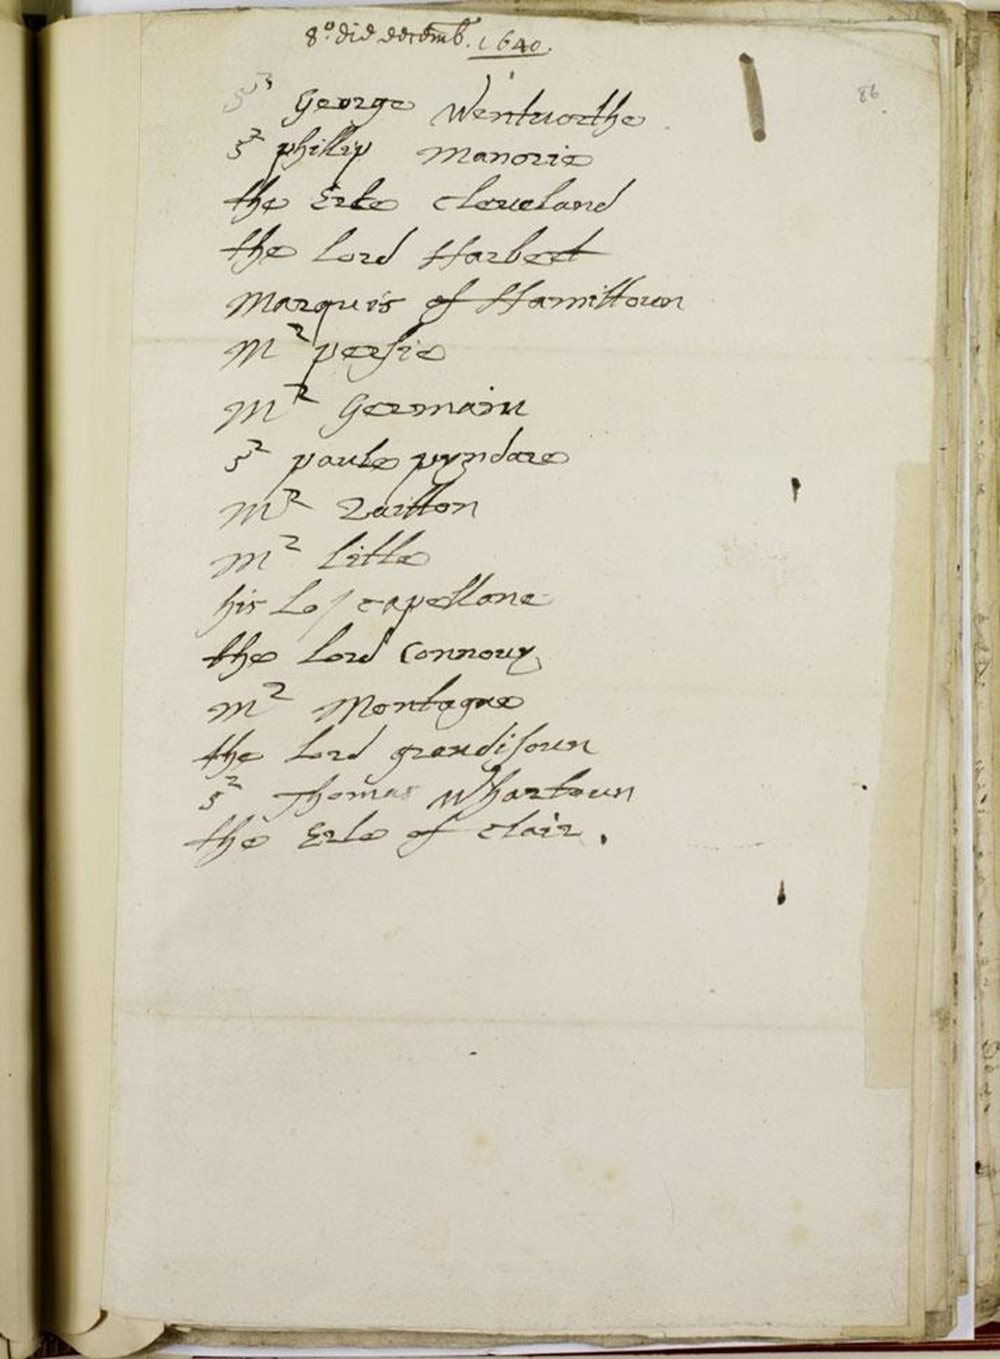 8º die decemb. 1640.
86
Sr George Wentworthe
Sr phillip Manorie
the Erle Cleveland
the Lord Harbert
Marquis of Hamiltoun
Mr persie
Mr Germain
Sr paule pyndare
Mr
Mr little
his Lo/ capellone
the Lord Connouy
Mr Montague
the Lord grandisoun
Sr Thomas Whartoun
the Erle of Clair.